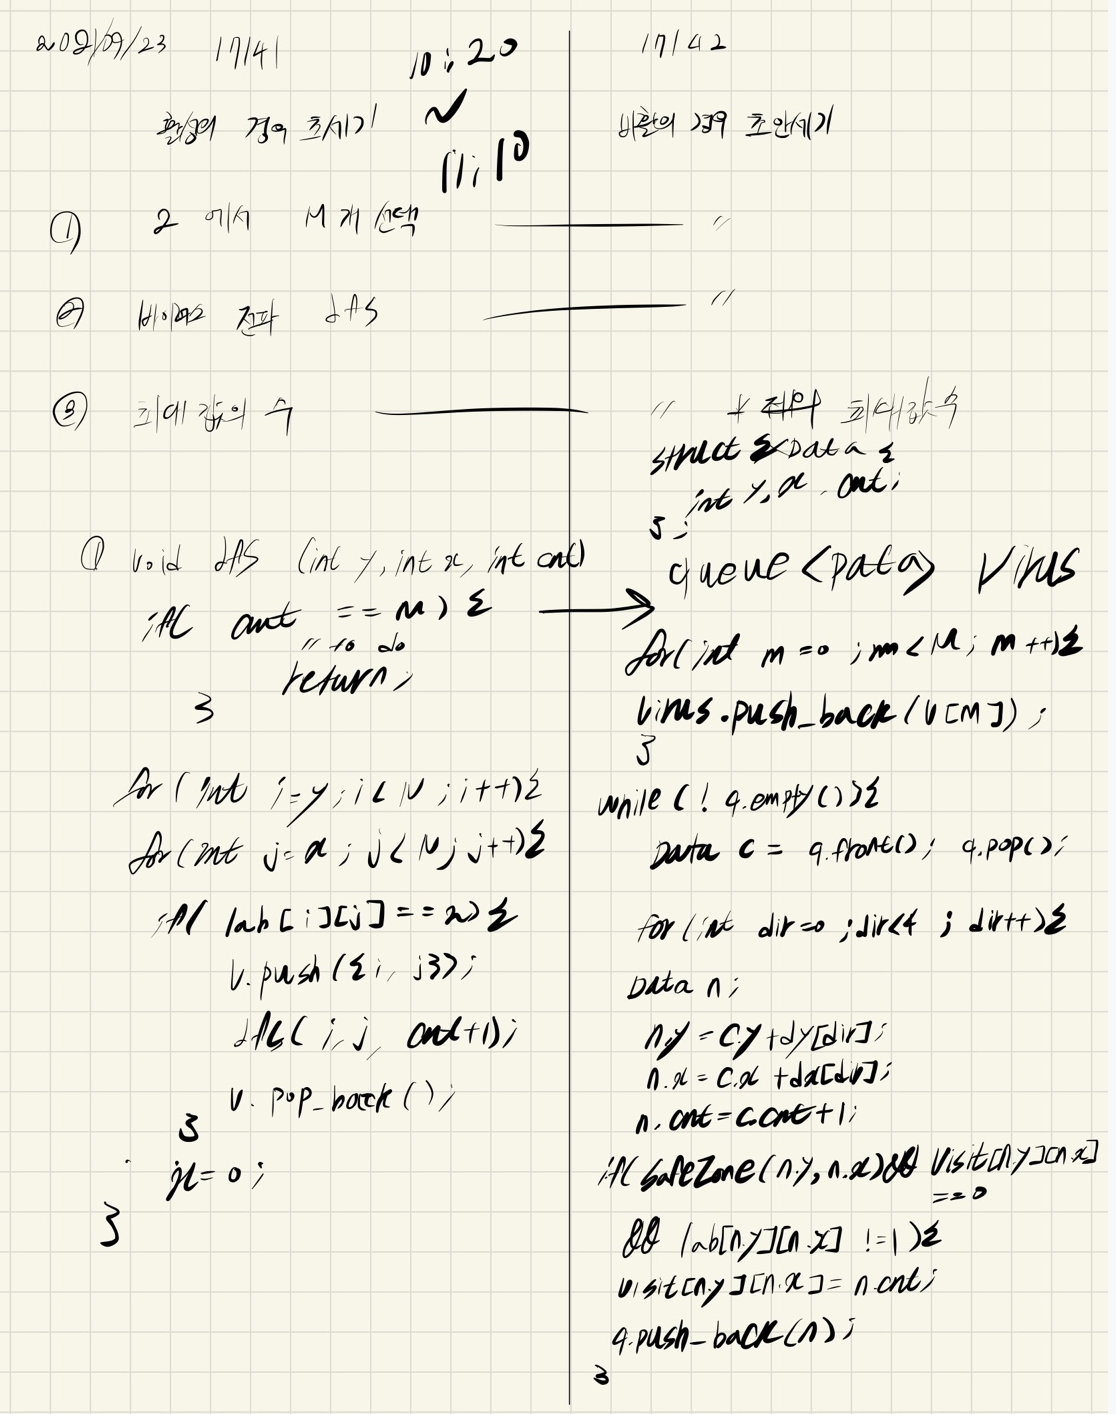 2021/09/23 17141
10:20
✓
11:10
활성의 경우 초세기
① 2 에서 M개 선택
② 바이러스 전파 dfs
③ 최대 값의 수
① void dfs (int y, int x, int cnt)
if( cnt == M) {
// to do
return;
}
for( int i=y; i< N; i++){
for(int j=x; j< N; j++){
if( lab[i][j] == 2) {
v.push({i, j});
dfs( i, j, cnt+1);
v. pop_back();
}
x = 0;
}
17142
비활의 경우 초안세기
〃
〃
〃 최대값수
struct Data {
int y, x, cnt;
};
queue <Data> Virus
for(int m=0; m<M; m++){
Virus.push_back(v[M]);
}
while( ! q.empty()){
Data c = q.front(); q.pop();
for(int dir=0; dir<4; dir++){
Data n;
n.y = c.y+dy[dir];
n.x = c.x +dx[dir];
n.cnt=c.cnt+1;
if( SafeZone(n.y, n.x)&& Visit[n.y][n.x]
==0
&& lab[n.y][n.x] !=1){
visit[n.y][n.x]= n.cnt;
q.push_back(n);
}